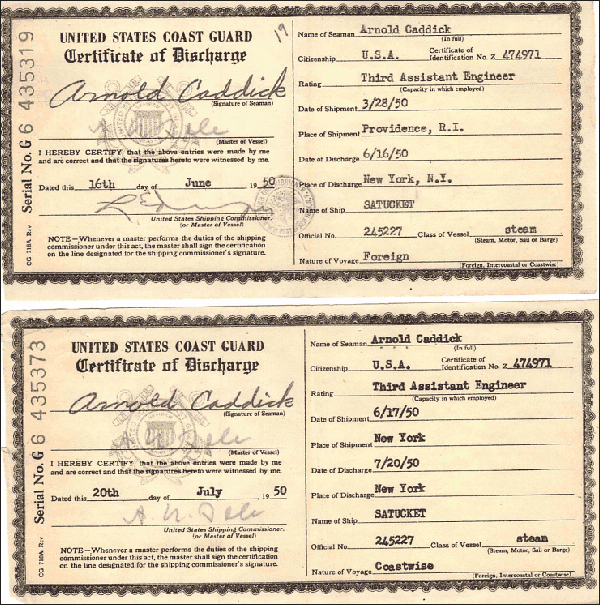 Serial No. G 6 435319
CG 718A Rev
UNITED STATES COAST GUARD
Certificate of Discharge
19
Arnold Caddick
(Signature of Seaman)
(Master of Vessel)
I HEREBY CERTIFY that the above entries were made by me
and are correct and that the signatures hereto were witnessed by me.
Dated this 16th day of June 1950
United States Shipping Commissioner.
(or Master of Vessel)
NOTE—Whenever a master performs the duties of the shipping
commissioner under this act, the master shall sign the certification
on the line designated for the shipping commissioner's signature.
Name of Seaman Arnold Caddick
(In full)
Citizenship U.S.A. Certificate of Identification No. Z 474971
Rating Third Assistant Engineer
(Capacity in which employed)
Date of Shipment 3/28/50
Place of Shipment Providence, R.I.
Date of Discharge 6/16/50
Place of Discharge New York, N.Y.
Name of Ship SATUCKET
Official No. 245227 Class of Vessel steam
(Steam, Motor, Sail or Barge)
Nature of Voyage Foreign
(Foreign, Intercoastal or Coastwise)
Serial No. G 6 435373
CG 718A Rev
UNITED STATES COAST GUARD
Certificate of Discharge
Arnold Caddick
(Signature of Seaman)
(Master of Vessel)
I HEREBY CERTIFY that the above entries were made by me
and are correct and that the signatures hereto were witnessed by me.
Dated this 20th day of July 1950
United States Shipping Commissioner.
(or Master of Vessel)
NOTE—Whenever a master performs the duties of the shipping
commissioner under this act, the master shall sign the certification
on the line designated for the shipping commissioner's signature.
Name of Seaman Arnold Caddick
(In full)
Citizenship U.S.A. Certificate of Identification No. Z 474971
Rating Third Assistant Engineer
(Capacity in which employed)
Date of Shipment 6/17/50
Place of Shipment New York
Date of Discharge 7/20/50
Place of Discharge New York
Name of Ship SATUCKET
Official No. 245227 Class of Vessel steam
(Steam, Motor, Sail or Barge)
Nature of Voyage Coastwise
(Foreign, Intercoastal or Coastwise)